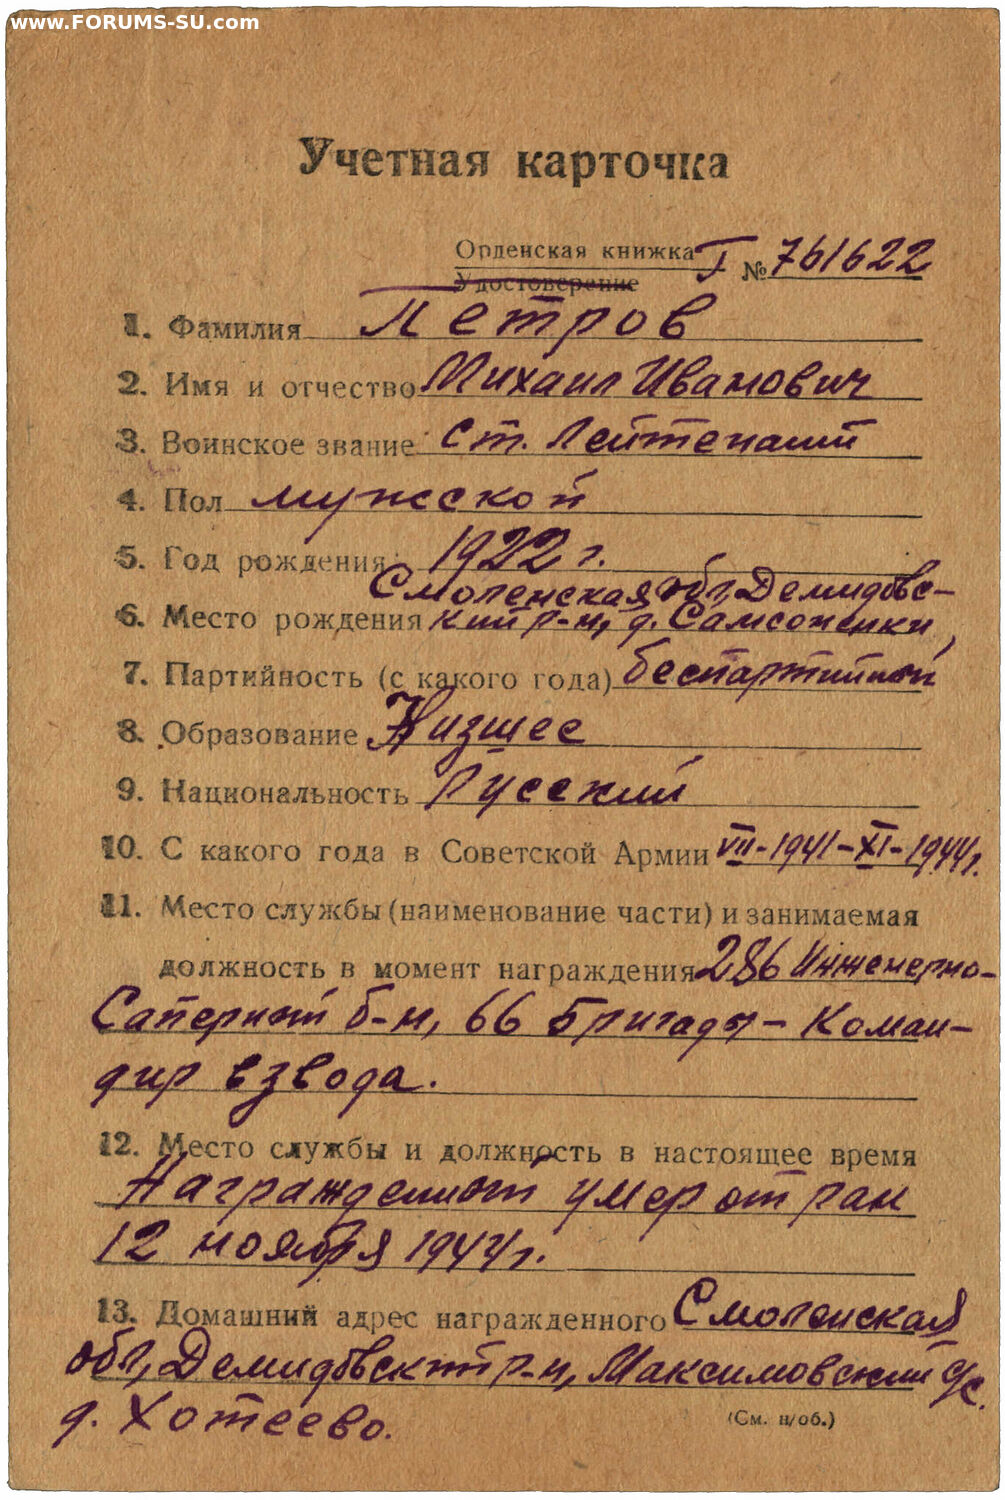 www.FORUMS-SU.com
Учетная карточка
Орденская книжка Т № 761622
Удостоверение
1. Фамилия Петров
2. Имя и отчество Михаил Иванович
3. Воинское звание Ст. Лейтенант
4. Пол мужской
5. Год рождения 1922 г.
Смоленская обл, Демидовс-
6. Место рождения кий р-н, д. Самсоненки,
7. Партийность (с какого года) беспартийный
8. Образование Низшее
9. Национальность Русский
10. С какого года в Советской Армии VII-1941-XI-1944г.
11. Место службы (наименование части) и занимаемая
должность в момент награждения 286 Инженерно-
Саперный б-н, 66 Бригады - Коман-
дир взвода.
12. Место службы и должность в настоящее время
Награжденный умер от ран
12 ноября 1944г.
13. Домашний адрес награжденного Смоленская
обл, Демидовский р-н, Максимовский с/с.
д. Хотеево.
(См. н/об.)